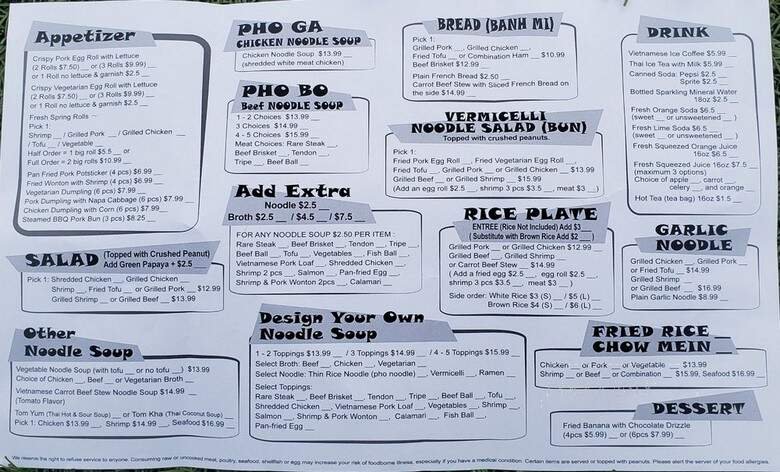 Appetizer
Crispy Pork Egg Roll with Lettuce
(2 Rolls $7.50) __ or (3 Rolls $9.99) __
or 1 Roll no lettuce & garnish $2.5 __
Crispy Vegetarian Egg Roll with Lettuce
(2 Rolls $7.50) __ or (3 Rolls $9.99) __
or 1 Roll no lettuce & garnish $2.5 __
Fresh Spring Rolls ~
Pick 1:
Shrimp __ / Grilled Pork __ / Grilled Chicken
/ Tofu __ / Vegetable __
Half Order = 1 big roll $5.5 __ or
Full Order = 2 big rolls $10.99 __
Pan Fried Pork Potsticker (4 pcs) $6.99 __
Fried Wonton with Shrimp (4 pcs) $6.99 __
Vegetarian Dumpling (6 pcs) $7.99 __
Pork Dumpling with Napa Cabbage (6 pcs) $7.99 __
Chicken Dumpling with Corn (6 pcs) $7.99 __
Steamed BBQ Pork Bun (3 pcs) $8.25 __
SALAD (Topped with Crushed Peanut)
Add Green Papaya + $2.5
Pick 1: Shredded Chicken __, Grilled Chicken __
Shrimp __, Fried Tofu __ or Grilled Pork __ $12.99
Grilled Shrimp __ or Grilled Beef __ $13.99
Other
Noodle Soup
Vegetable Noodle Soup (with tofu __ or no tofu __) $13.99
Choice of Chicken __, Beef __ or Vegetarian Broth __
Vietnamese Carrot Beef Stew Noodle Soup $14.99 __
(Tomato Flavor)
Tom Yum (Thai Hot & Sour Soup) __ or Tom Kha (Thai Coconut Soup) __
Pick 1: Chicken $13.99 __, Shrimp $14.99 __, Seafood $16.99 __
PHO GA
CHICKEN NOODLE SOUP
Chicken Noodle Soup $13.99 __
(shredded white meat chicken)
PHO BO
Beef NOODLE SOUP
1 - 2 Choices $13.99 __
3 Choices $14.99 __
4 - 5 Choices $15.99 __
Meat Choices: Rare Steak __,
Beef Brisket __, Tendon __,
Tripe __, Beef Ball __
Add Extra
Noodle $2.5 __
Broth $2.5 __ / $4.5 __ / $7.5 __
FOR ANY NOODLE SOUP $2.50 PER ITEM :
Rare Steak __, Beef Brisket __, Tendon __, Tripe __,
Beef Ball __, Tofu __, Vegetables __, Fish Ball __,
Vietnamese Pork Loaf __, Shredded Chicken __,
Shrimp 2 pcs __, Salmon __, Pan-fried Egg __,
Shrimp & Pork Wonton 2pcs __, Calamari __
Design Your Own
Noodle Soup
1 - 2 Toppings $13.99 __ / 3 Toppings $14.99 __ / 4 - 5 Toppings $15.99 __
Select Broth: Beef __, Chicken __, Vegetarian __
Select Noodle: Thin Rice Noodle (pho noodle) __, Vermicelli __, Ramen __
Select Toppings:
Rare Steak __, Beef Brisket __, Tendon __, Tripe __, Beef Ball __, Tofu __,
Shredded Chicken __, Vietnamese Pork Loaf __, Vegetables __, Shrimp __,
Salmon __, Shrimp & Pork Wonton __, Calamari __, Fish Ball __,
Pan-fried Egg __
BREAD (BANH MI)
Pick 1:
Grilled Pork __, Grilled Chicken __,
Fried Tofu __ or Combination Ham __ $10.99
Beef Brisket $12.99 __
Plain French Bread $2.50 __
Carrot Beef Stew with Sliced French Bread on
the side $14.99 __
VERMICELLI
NOODLE SALAD (BUN)
Topped with crushed peanuts.
Pick 1:
Fried Pork Egg Roll __, Fried Vegetarian Egg Roll __,
Fried Tofu __, Grilled Pork __ or Grilled Chicken __ $13.99
Grilled Beef __ or Grilled Shrimp __ $15.99
(Add an egg roll $2.5 __, shrimp 3 pcs $3.5 __, meat $3 __)
RICE PLATE
ENTREE (Rice Not Included) Add $3
( Substitute with Brown Rice Add $2 __ )
Grilled Pork __ or Grilled Chicken $12.99 __
Grilled Beef __, Grilled Shrimp __
or Carrot Stew __ $14.99
( Add a fried egg $2.5 __, egg roll $2.5 __,
shrimp 3 pcs $3.5 __, meat $3 __ )
Side order: White Rice $3 (S) __ / $5 (L) __
Brown Rice $4 (S) __ / $6 (L) __
DRINK
Vietnamese Ice Coffee $5.99 __
Thai Ice Tea with Milk $5.99 __
Canned Soda: Pepsi $2.5 __
Sprite $2.5 __
Bottled Sparkling Mineral Water
18oz $2.5 __
Fresh Orange Soda $6.5 __
(sweet __ or unsweetened __ )
Fresh Lime Soda $6.5 __
(sweet __ or unsweetened __ )
Fresh Squeezed Orange Juice
16oz $6.5 __
Fresh Squeezed Juice 16oz $7.5 __
(maximum 3 options)
Choice of apple __, carrot __,
celery __, and orange __
Hot Tea (tea bag) 16oz $1.5 __
GARLIC
NOODLE
Grilled Chicken __, Grilled Pork __
or Fried Tofu __ $14.99
Grilled Shrimp __
or Grilled Beef __ $16.99
Plain Garlic Noodle $8.99 __
FRIED RICE
CHOW MEIN
Chicken __ or Pork __ or Vegetable __ $13.99
Shrimp __ or Beef __ or Combination __ $15.99, Seafood $16.99 __
DESSERT
Fried Banana with Chocolate Drizzle
(4pcs $5.99) __ or (6pcs $7.99) __
We reserve the right to refuse service to anyone. Consuming raw or uncooked meat, poultry, seafood, shellfish or egg may increase your risk of foodborne illness, especially if you have a medical condition. Certain items are served or topped with peanuts. Please alert the server of your food allergies.